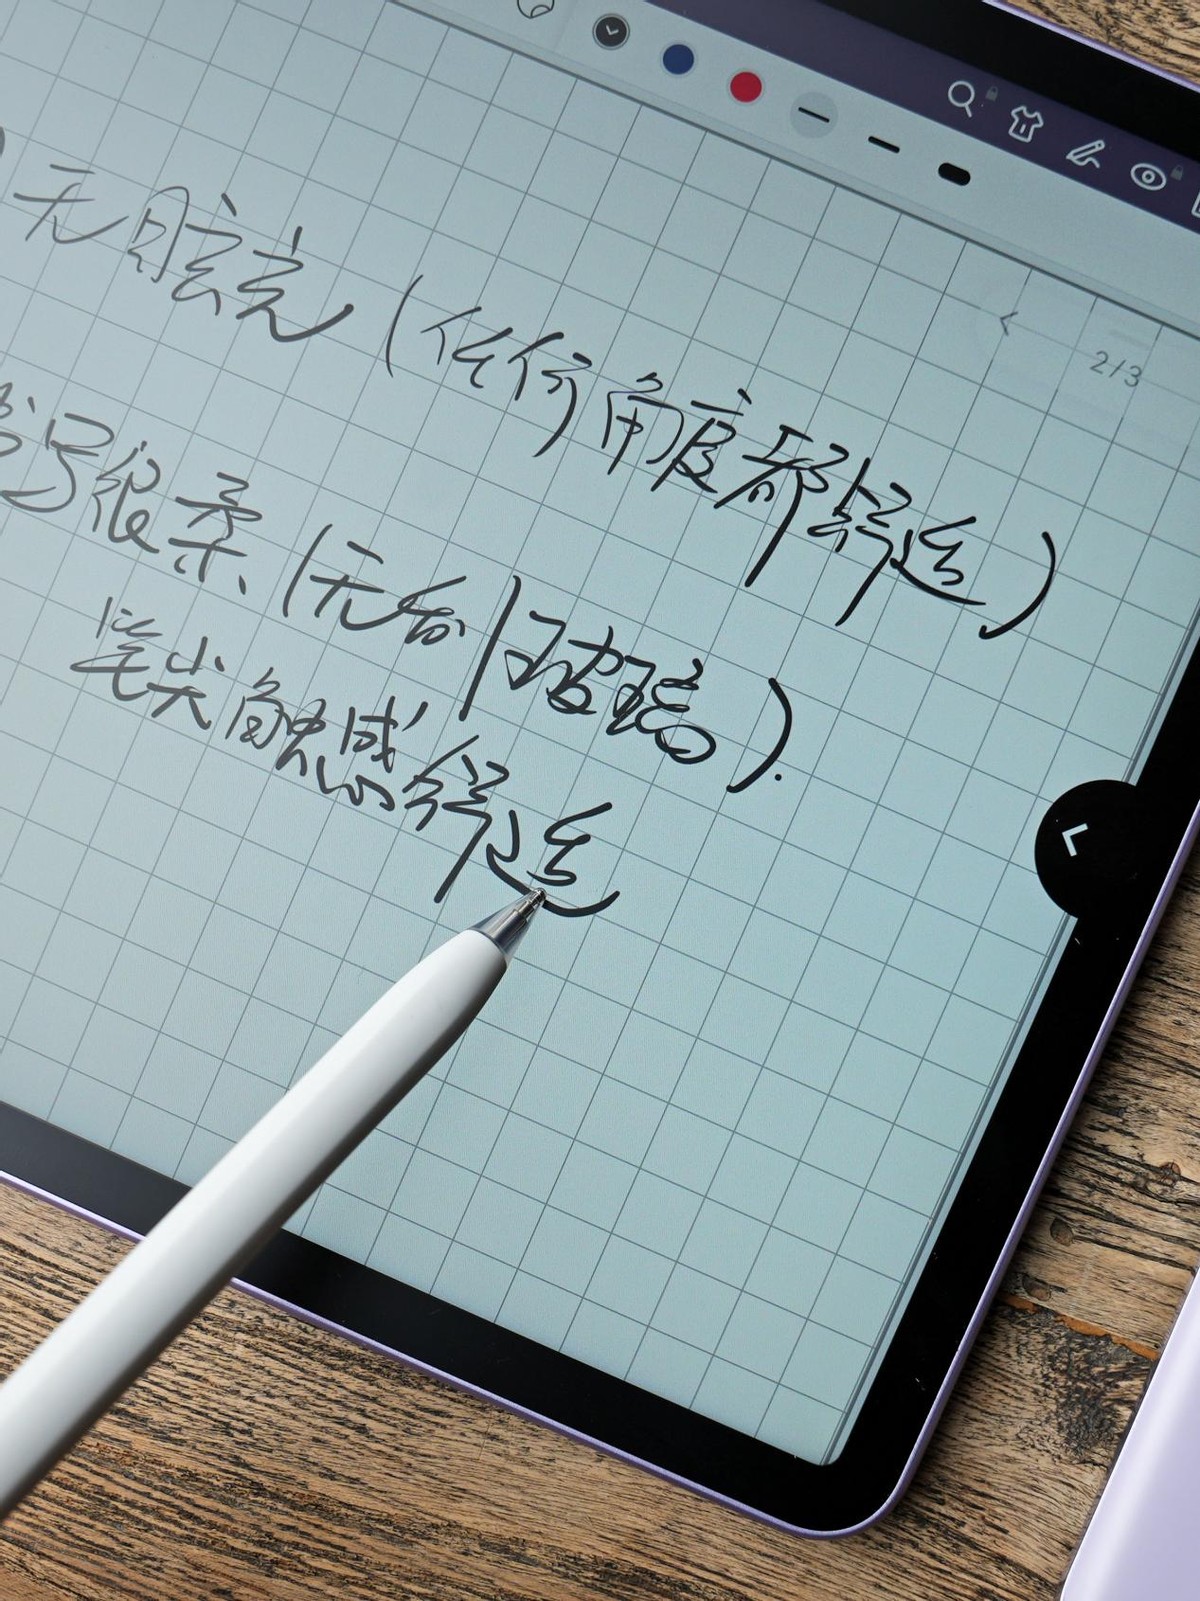 2/3
无眩光(任何角度都舒适)
写很柔(无刮玻璃).
笔尖触感舒适